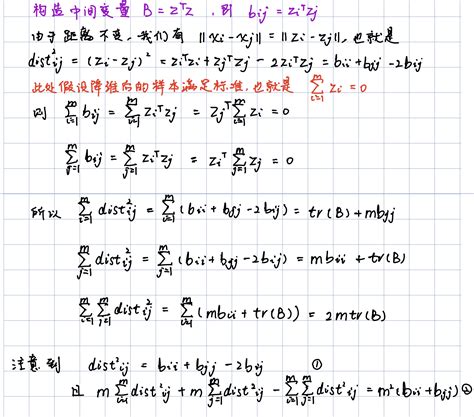 构造中间变量 B = ZᵀZ, 则 bᵢⱼ = zᵢᵀzⱼ
由于距离不变,我们有 ||xᵢ-xⱼ|| = ||zᵢ-zⱼ||, 也就是
dist²ᵢⱼ = (zᵢ-zⱼ)² = zᵢᵀzᵢ + zⱼᵀzⱼ - 2zᵢᵀzⱼ = bᵢᵢ + bⱼⱼ - 2bᵢⱼ
此处假设降维后的样本满足标准,也就是 ∑ᵢ₌₁ᵐ zᵢ = 0
则 ∑ᵢ₌₁ᵐ bᵢⱼ = ∑ᵢ₌₁ᵐ zᵢᵀzⱼ = zⱼᵀ∑ᵢ₌₁ᵐ zᵢ = 0
∑ⱼ₌₁ᵐ bᵢⱼ = ∑ⱼ₌₁ᵐ zᵢᵀzⱼ = zᵢᵀ∑ⱼ₌₁ᵐ zⱼ = 0
所以 ∑ᵢ₌₁ᵐ dist²ᵢⱼ = ∑ᵢ₌₁ᵐ (bᵢᵢ + bⱼⱼ - 2bᵢⱼ) = tr(B) + mbⱼⱼ
∑ⱼ₌₁ᵐ dist²ᵢⱼ = ∑ⱼ₌₁ᵐ (bᵢᵢ + bⱼⱼ - 2bᵢⱼ) = mbᵢᵢ + tr(B)
∑ᵢ₌₁ᵐ ∑ⱼ₌₁ᵐ dist²ᵢⱼ = ∑ᵢ₌₁ᵐ (mbᵢᵢ + tr(B)) = 2mtr(B)
注意到 dist²ᵢⱼ = bᵢᵢ + bⱼⱼ - 2bᵢⱼ ①
且 m∑ᵢ₌₁ᵐ dist²ᵢⱼ + m∑ⱼ₌₁ᵐ dist²ᵢⱼ - ∑ᵢ₌₁ᵐ∑ⱼ₌₁ᵐ dist²ᵢⱼ = m²(bᵢᵢ + bⱼⱼ) ②